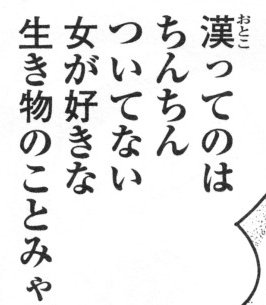 漢ってのは
ちんちん
ついてない
女が好きな
生き物のことみゃ
おとこ